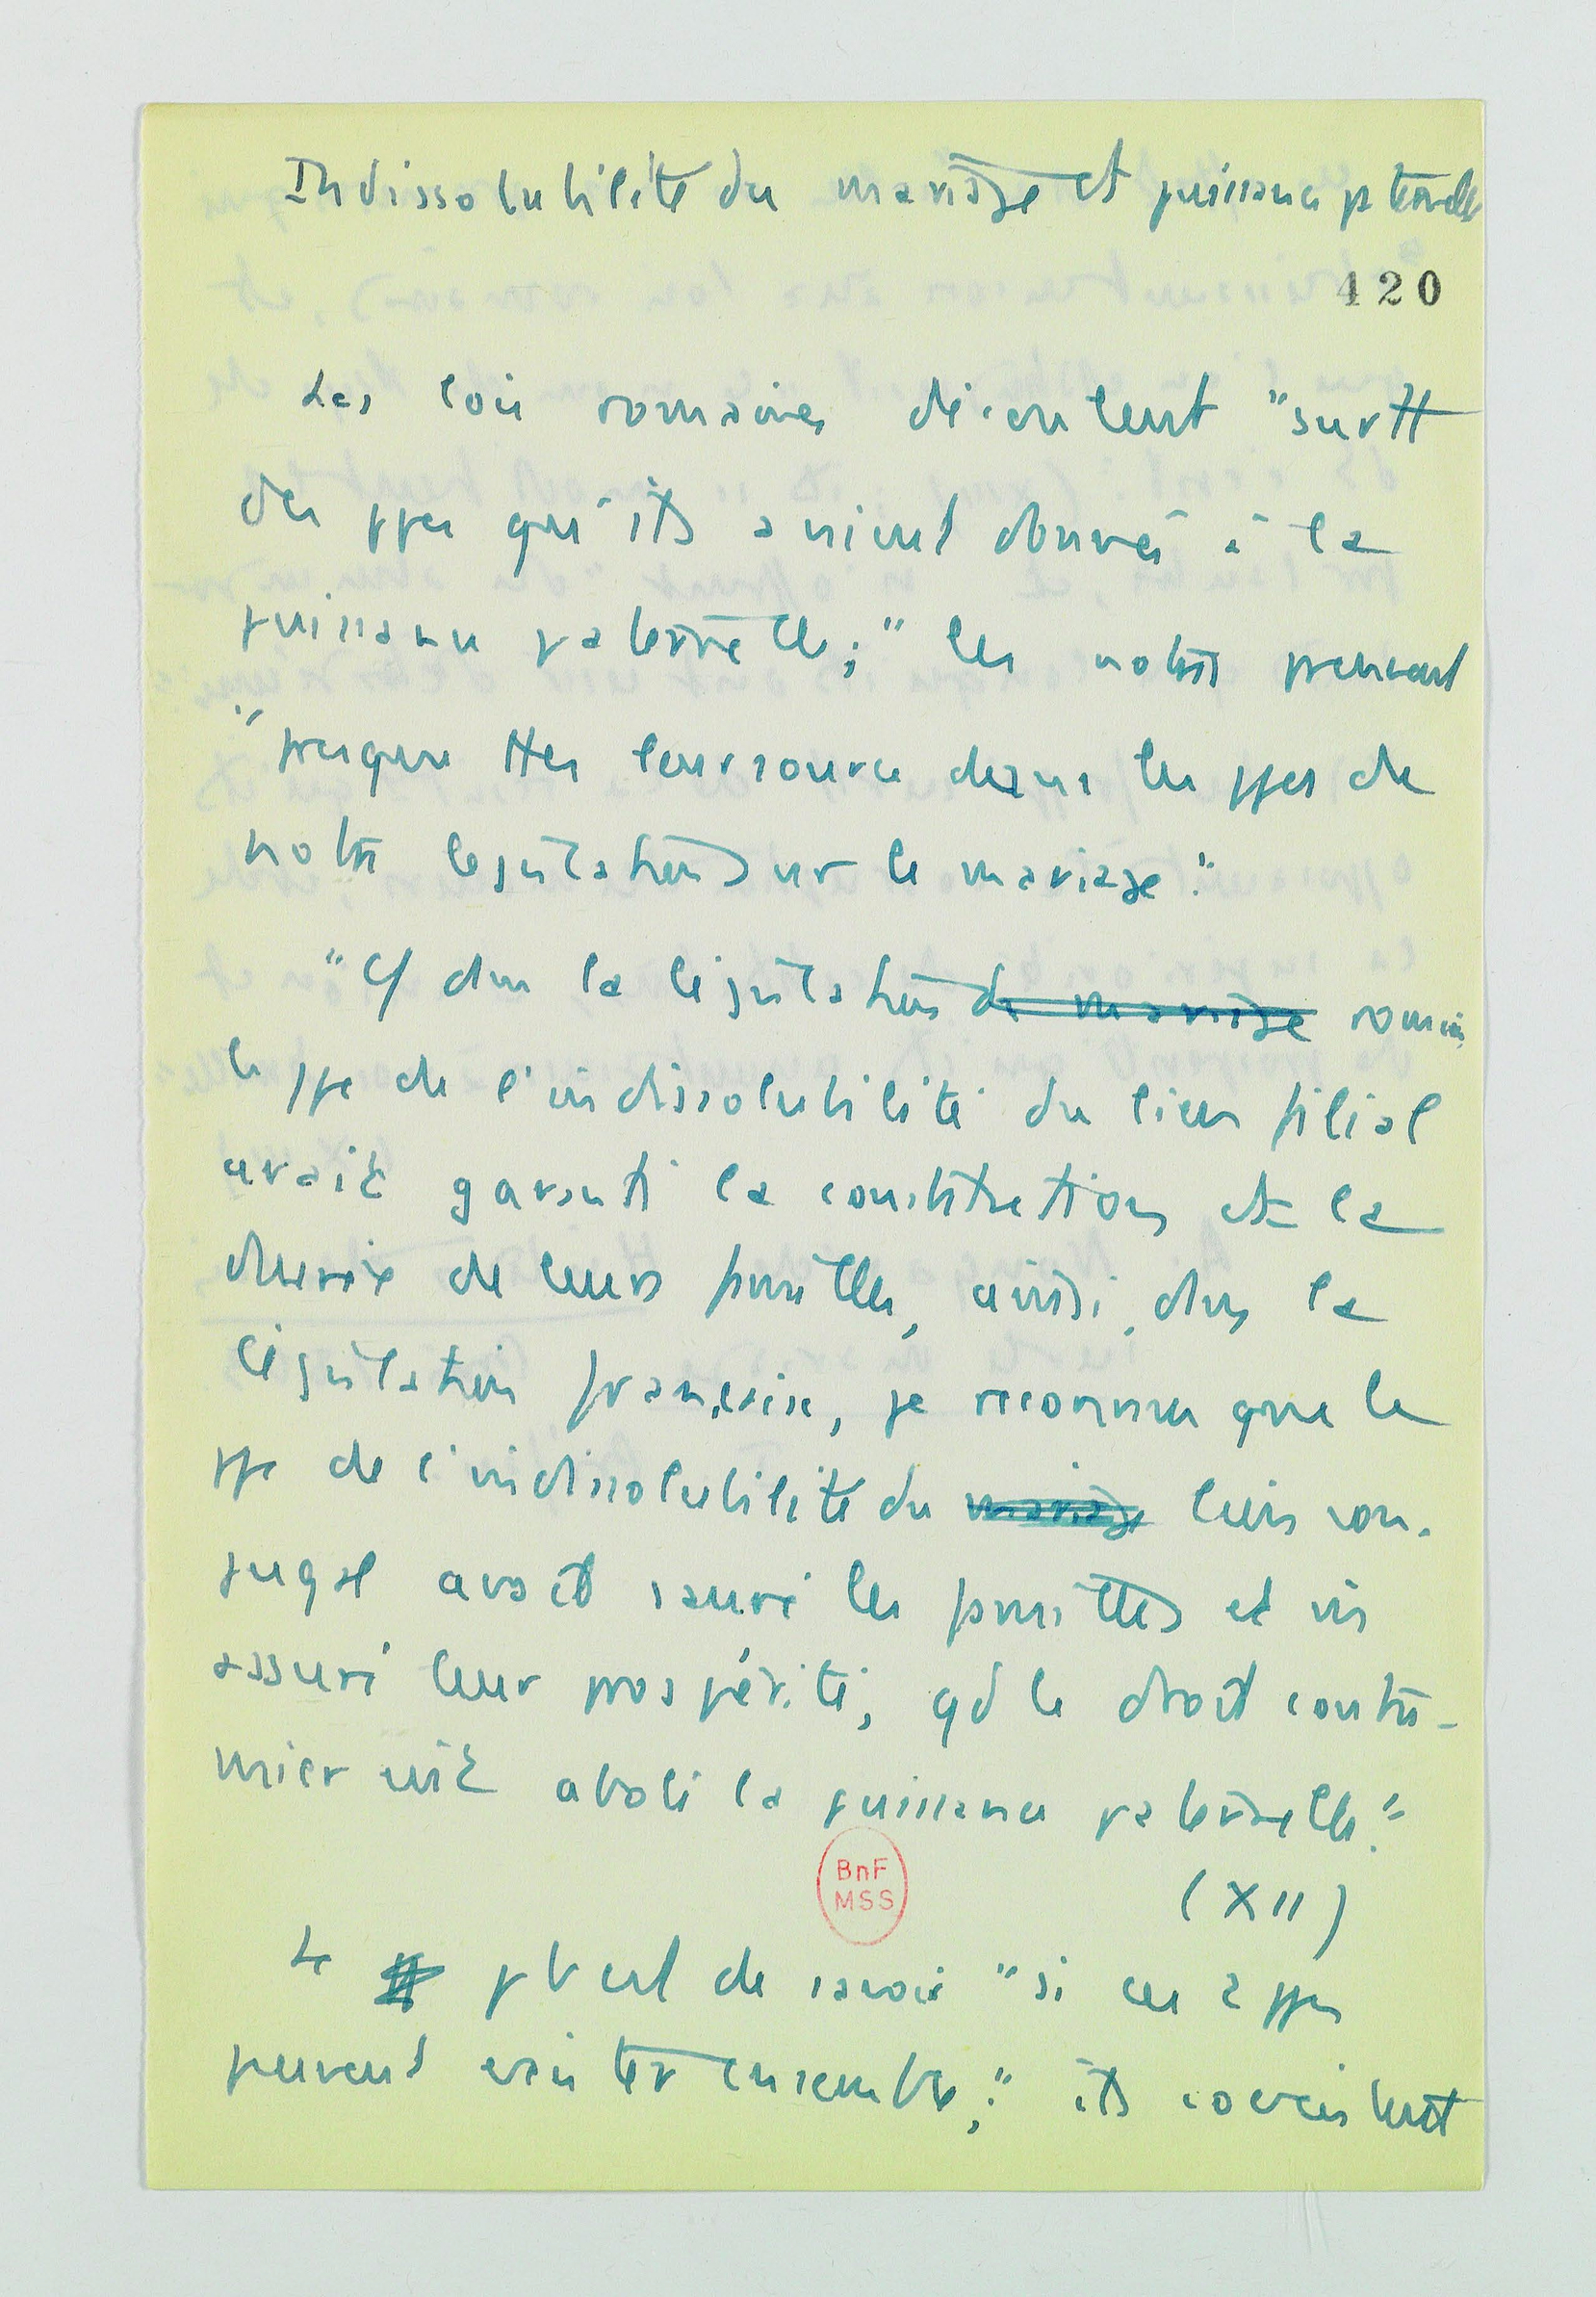 Indissolubilité du mariage et puissance paternelle
420
Les lois romaines découlent "surtt
des ppes qu'ils avaient donnés à la
puissance paternelle;" les notres prennent
"presque ttes leur source dans les ppes de
notre législation sur le mariage."
"Cf dans la législation de mariage romaine
le ppe de l'indissolubilité du lien filial
avait garanti la constitution et la
durée de leurs familles, ainsi, dans la
législation française, je reconnus que le
ppe de l'indissolubilité du mariage lien con-
jugal avait sauvé les familles et
assuré leur prospérité, qd le droit coutu-
mier eut aboli la puissance paternelle."
BnF
MSS
(XII)
Le pb est de savoir "si ces 2 ppes
peuvent exister ensemble;" ils coexistent